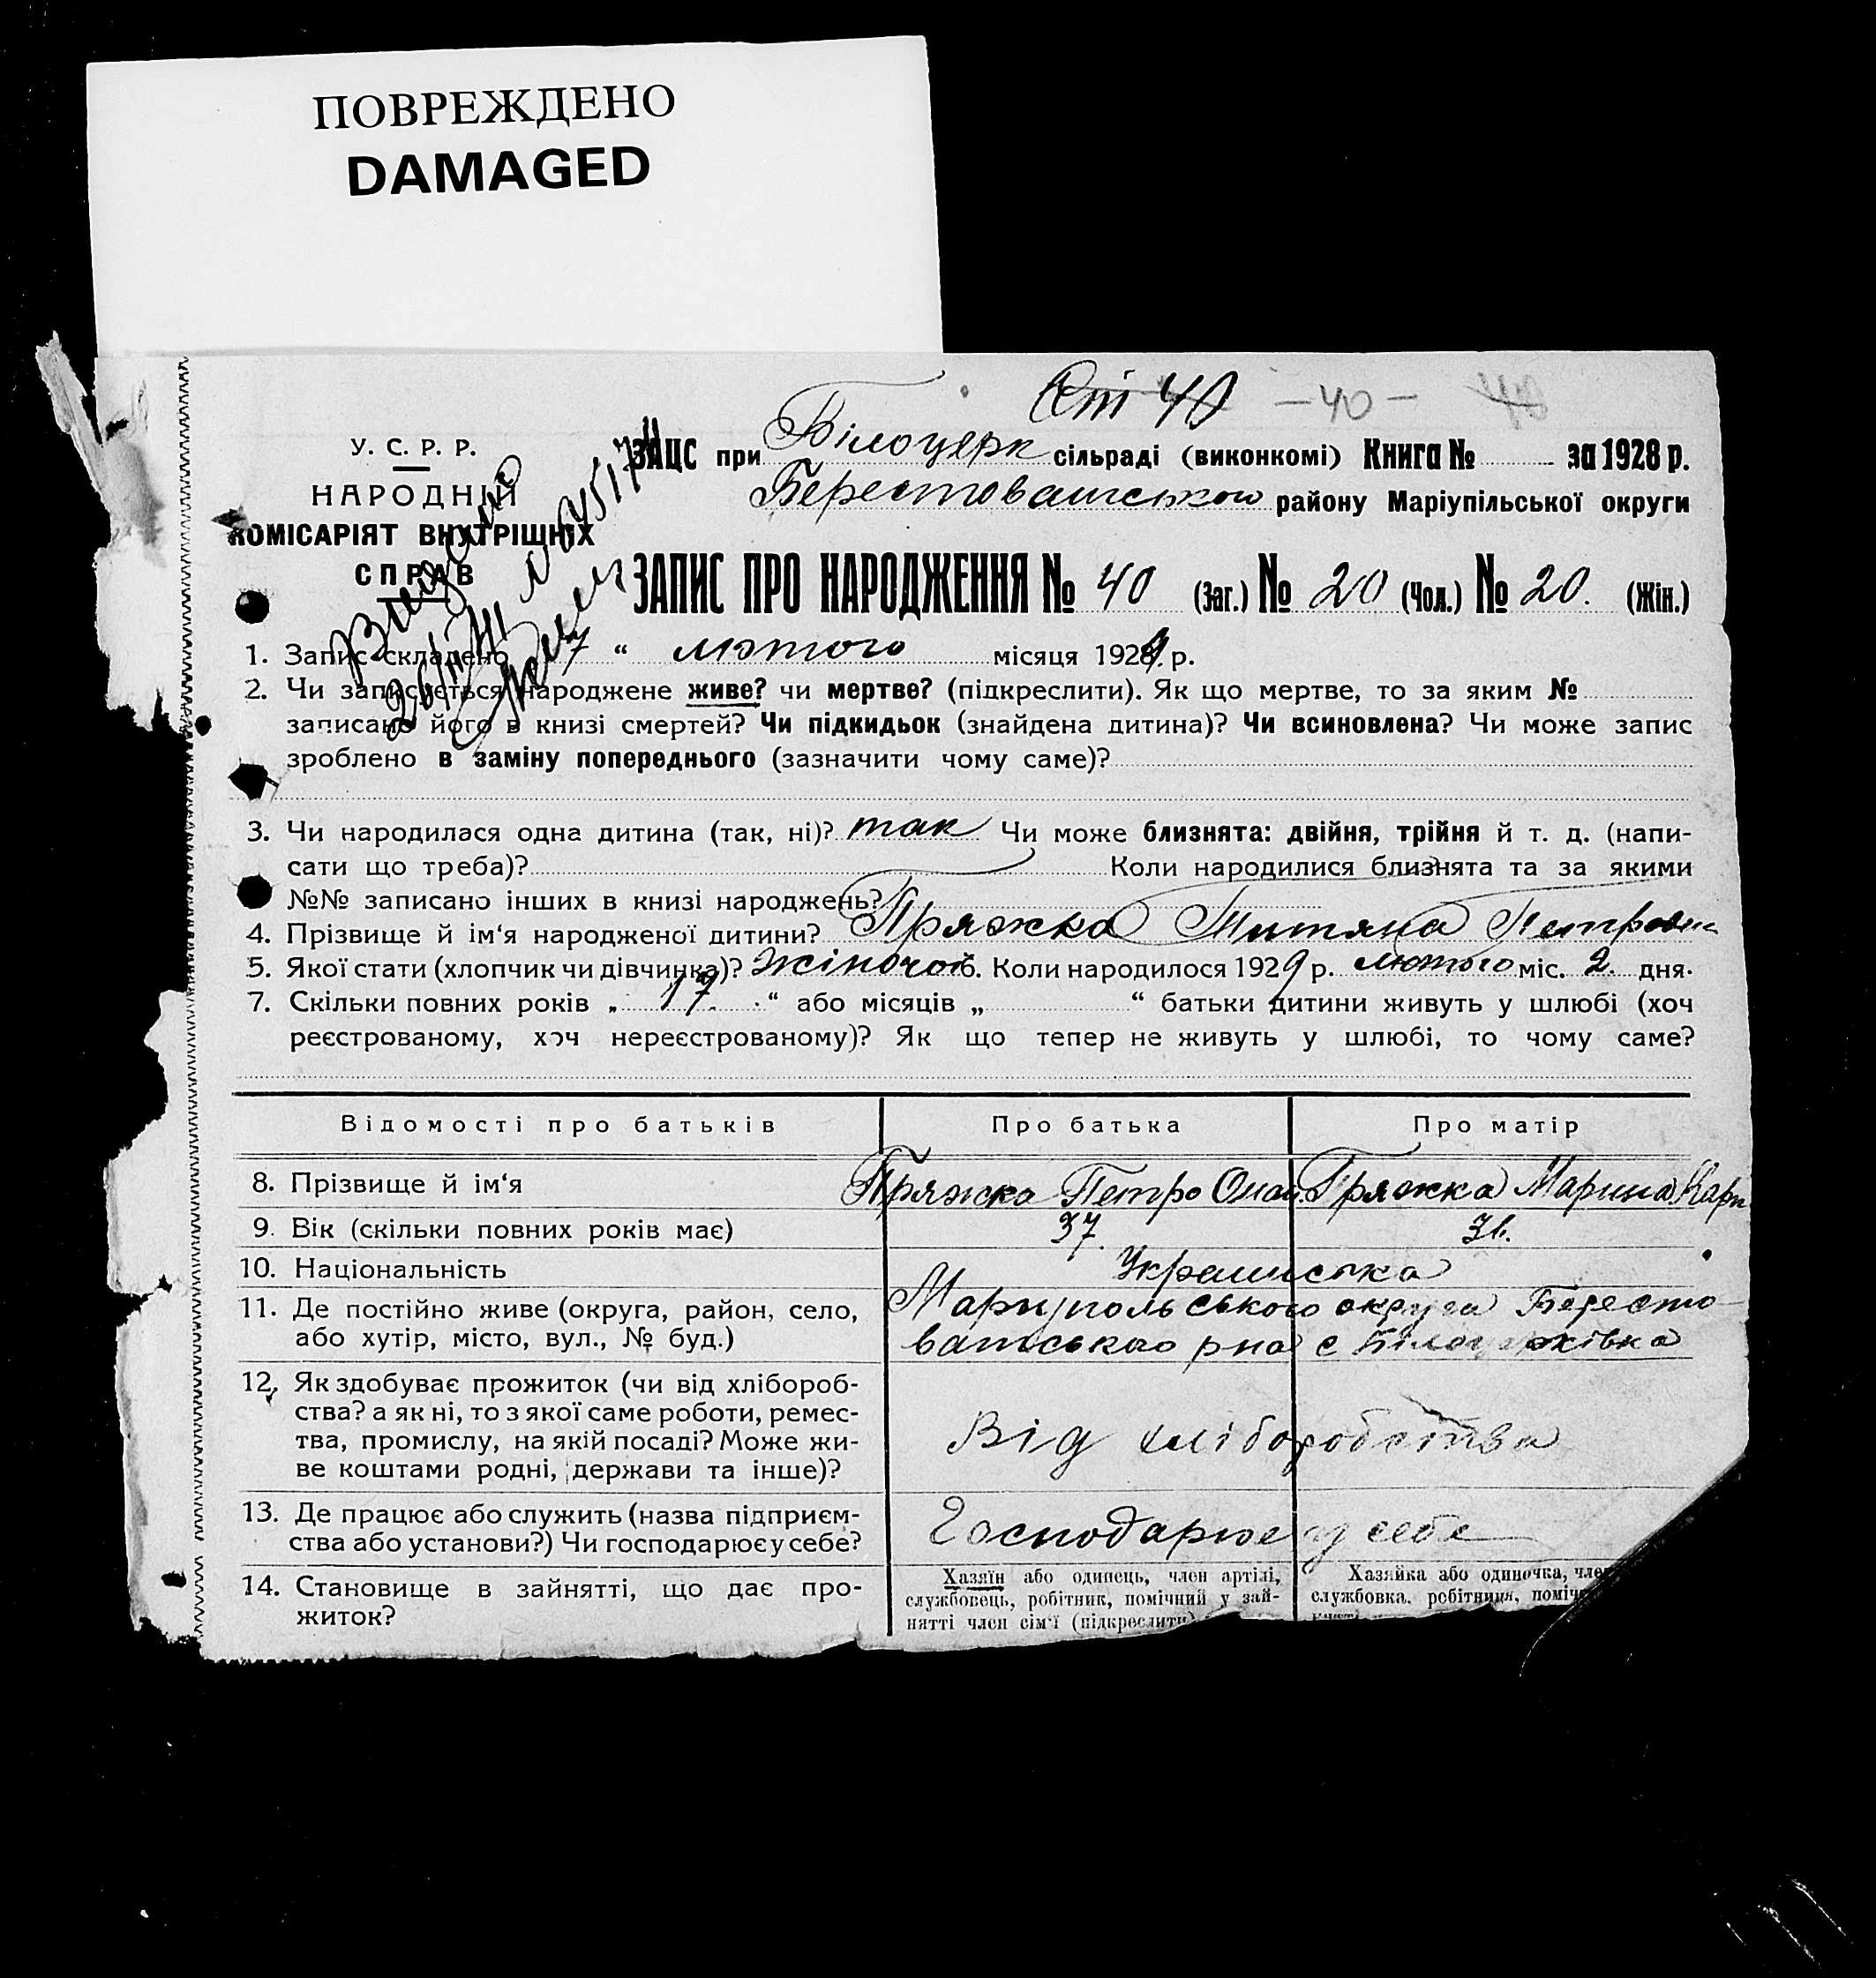 ПОВРЕЖДЕНО
DAMAGED
Ст 40 — 40 — 40
У. С. Р. Р.
НАРОДНІЙ
КОМІСАРІЯТ ВНУТРІШНІХ
СПРАВ
ЗАЦС при Білоцерк сільраді (виконкомі) Книга № за 1928 р.
району Маріупільської округи
ЗАПИС ПРО НАРОДЖЕННЯ № 40 (Заг.) № 20 (Чол.) № 20. (Жін.)
1. Запис складено 7 “ лютого місяця 1929 р.
2. Чи записується народжене живе? чи мертве? (підкреслити). Як що мертве, то за яким №
записано його в книзі смертей? Чи підкидьок (знайдена дитина)? Чи всиновлена? Чи може запис
зроблено в заміну попереднього (зазначити чому саме)?
3. Чи народилася одна дитина (так, ні)? так Чи може близнята: двійня, трійня й т. д. (напи-
сати що треба)? Коли народилися близнята та за якими
№№ записано інших в книзі народжень?
4. Прізвище й ім‘я народженої дитини? Пряжка Титяна Петровн
5. Якої стати (хлопчик чи дівчинка)? Жіночої 6. Коли народилося 1929 р. лютого міс. 2. дня.
7. Скільки повних років „ 17. “ або місяців „ “ батьки дитини живуть у шлюбі (хоч
реєстрованому, хоч нереєстрованому)? Як що тепер не живуть у шлюбі, то чому саме?
Відомості про батьків Про батька Про матір
8. Прізвище й ім‘я Пряжка Петро Пряжка Марина Карп
9. Вік (скільки повних років має) 37.
10. Національність Украинська
11. Де постійно живе (округа, район, село, Мариупольського округа Бересто
або хутір, місто, вул., № буд.) ватського рна с Білоцерківка
12. Як здобуває прожиток (чи від хлібороб-
ства? а як ні, то з якої саме роботи, ремес-
тва, промислу, на якій посаді? Може жи- Від хліборобства
ве коштами родні, держави та інше)?
13. Де працює або служить (назва підприєм-
ства або установи?) Чи господарює у себе? Господарює у себе
14. Становище в зайнятті, що дає про-
житок?
Хазяїн або одинець, член артілі,
службовець, робітник, помічний у зай-
нятті член сім‘ї (підкреслити)
Хазяйка або одиночка, чле
службовка, робітниця, поміч